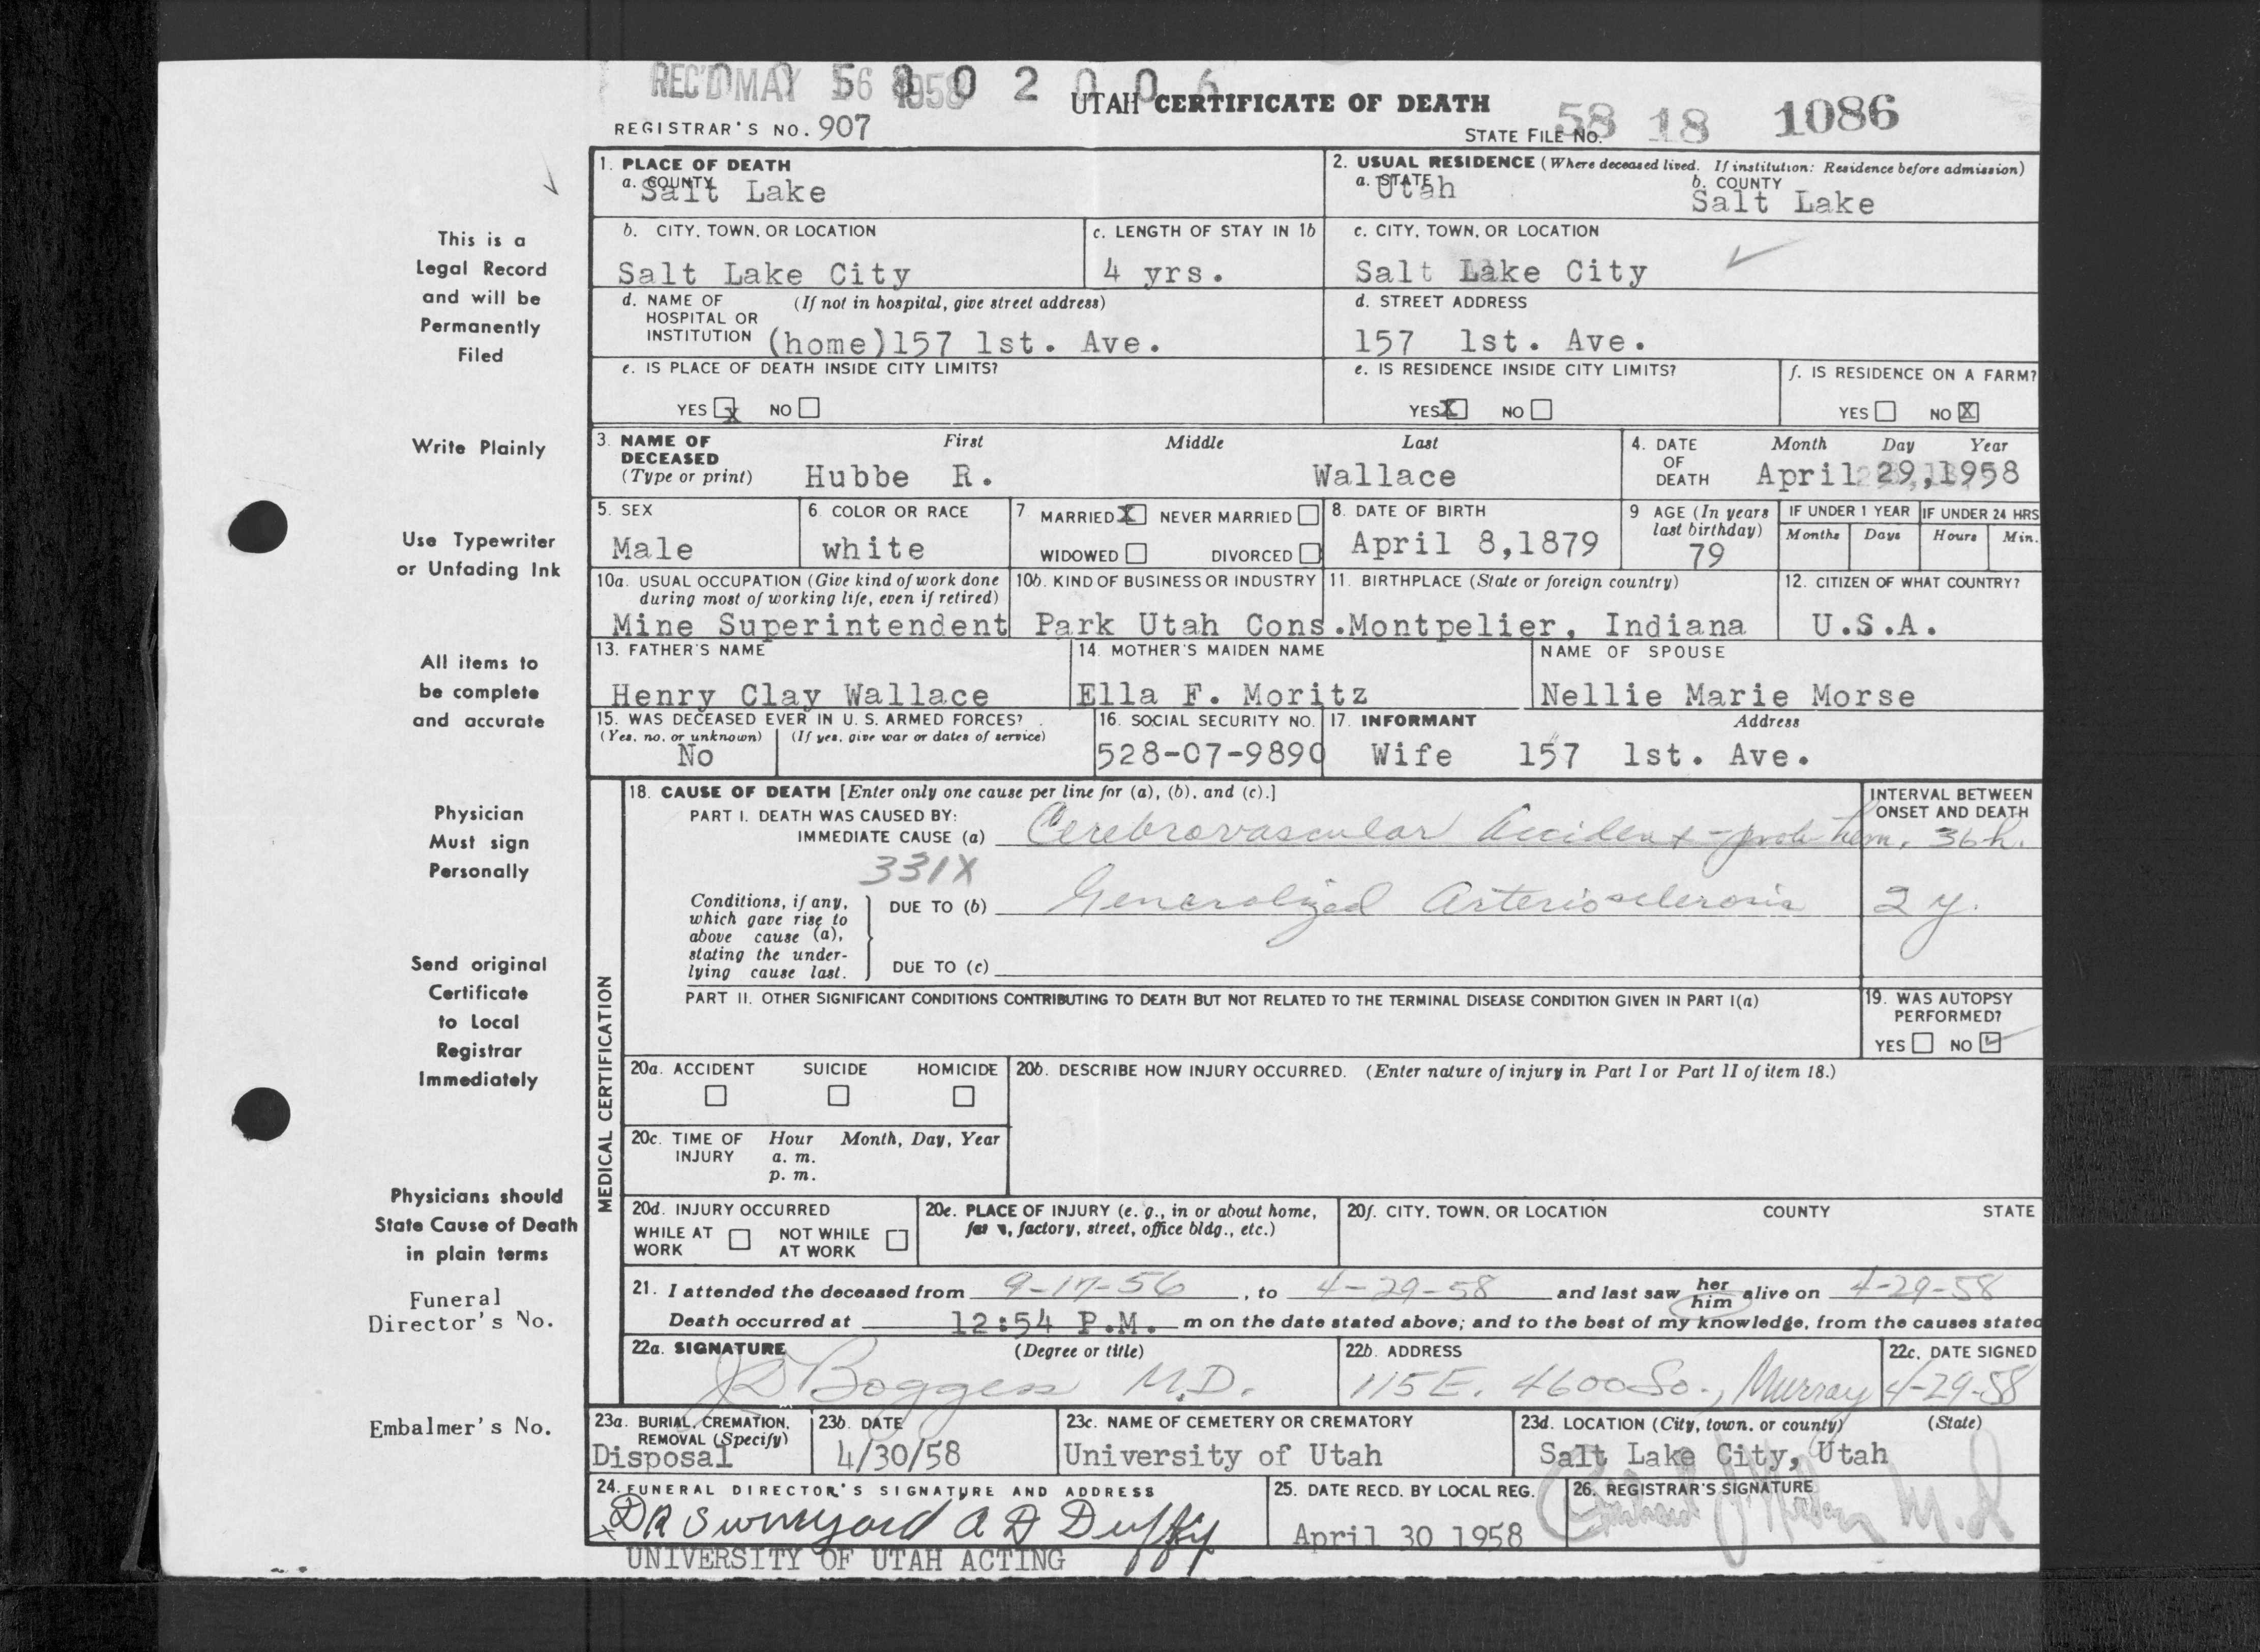 REC'D MAY 6 1958
UTAH CERTIFICATE OF DEATH
REGISTRAR'S NO. 907
STATE FILE NO. 58 18 1086
1. PLACE OF DEATH
a. COUNTY
Salt Lake
2. USUAL RESIDENCE (Where deceased lived. If institution: Residence before admission)
a. STATE b. COUNTY
Utah Salt Lake
b. CITY, TOWN, OR LOCATION
Salt Lake City
c. LENGTH OF STAY IN 1b
4 yrs.
c. CITY, TOWN, OR LOCATION
Salt Lake City
d. NAME OF HOSPITAL OR INSTITUTION (If not in hospital, give street address)
(home)157 1st. Ave.
d. STREET ADDRESS
157 1st. Ave.
e. IS PLACE OF DEATH INSIDE CITY LIMITS?
YES X NO
e. IS RESIDENCE INSIDE CITY LIMITS?
YES X NO
f. IS RESIDENCE ON A FARM?
YES NO X
3. NAME OF DECEASED (Type or print)
First Middle Last
Hubbe R. Wallace
4. DATE OF DEATH
Month Day Year
April 29,1958
5. SEX
Male
6. COLOR OR RACE
white
7 MARRIED X NEVER MARRIED
WIDOWED DIVORCED
8. DATE OF BIRTH
April 8,1879
9 AGE (In years last birthday)
79
IF UNDER 1 YEAR IF UNDER 24 HRS
Months Days Hours Min.
10a. USUAL OCCUPATION (Give kind of work done during most of working life, even if retired)
Mine Superintendent
10b. KIND OF BUSINESS OR INDUSTRY
Park Utah Cons.
11. BIRTHPLACE (State or foreign country)
Montpelier, Indiana
12. CITIZEN OF WHAT COUNTRY?
U.S.A.
13. FATHER'S NAME
Henry Clay Wallace
14. MOTHER'S MAIDEN NAME
Ella F. Moritz
NAME OF SPOUSE
Nellie Marie Morse
15. WAS DECEASED EVER IN U. S. ARMED FORCES?
(Yes, no, or unknown) (If yes, give war or dates of service)
No
16. SOCIAL SECURITY NO.
528-07-9890
17. INFORMANT Address
Wife 157 1st. Ave.
MEDICAL CERTIFICATION
18. CAUSE OF DEATH [Enter only one cause per line for (a), (b), and (c).]
INTERVAL BETWEEN ONSET AND DEATH
PART I. DEATH WAS CAUSED BY:
IMMEDIATE CAUSE (a) Cerebrovascular Accident - prob hem. 36 h.
331X
Conditions, if any, which gave rise to above cause (a), stating the underlying cause last.
DUE TO (b) Generalized Arteriosclerosis 2 y.
DUE TO (c)
PART II. OTHER SIGNIFICANT CONDITIONS CONTRIBUTING TO DEATH BUT NOT RELATED TO THE TERMINAL DISEASE CONDITION GIVEN IN PART I(a)
19. WAS AUTOPSY PERFORMED?
YES NO ✓
20a. ACCIDENT SUICIDE HOMICIDE
20b. DESCRIBE HOW INJURY OCCURRED. (Enter nature of injury in Part I or Part II of item 18.)
20c. TIME OF INJURY Hour Month, Day, Year
a. m.
p. m.
20d. INJURY OCCURRED
WHILE AT WORK NOT WHILE AT WORK
20e. PLACE OF INJURY (e. g., in or about home, farm, factory, street, office bldg., etc.)
20f. CITY, TOWN, OR LOCATION COUNTY STATE
21. I attended the deceased from 9-17-56, to 4-29-58 and last saw her him alive on 4-29-58
Death occurred at 12:54 P.M. m on the date stated above; and to the best of my knowledge, from the causes stated
22a. SIGNATURE (Degree or title)
Boggess M.D.
22b. ADDRESS
115 E. 4600 So., Murray
22c. DATE SIGNED
4-29-58
23a. BURIAL, CREMATION, REMOVAL (Specify)
Disposal
23b. DATE
4/30/58
23c. NAME OF CEMETERY OR CREMATORY
University of Utah
23d. LOCATION (City, town, or county) (State)
Salt Lake City, Utah
24. FUNERAL DIRECTOR'S SIGNATURE AND ADDRESS
DR Swinyard A D Duffy
UNIVERSITY OF UTAH ACTING
25. DATE RECD. BY LOCAL REG.
April 30 1958
26. REGISTRAR'S SIGNATURE
M.D.
This is a
Legal Record
and will be
Permanently
Filed
Write Plainly
Use Typewriter
or Unfading Ink
All items to
be complete
and accurate
Physician
Must sign
Personally
Send original
Certificate
to Local
Registrar
Immediately
Physicians should
State Cause of Death
in plain terms
Funeral
Director's No.
Embalmer's No.